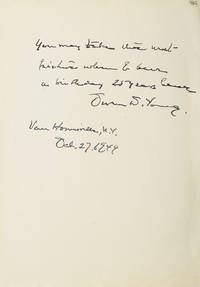 You may take this
when I have
a birthday 25 years hence
Owen D. Young
Van Hornesville, N.Y.
Oct. 27, 1949